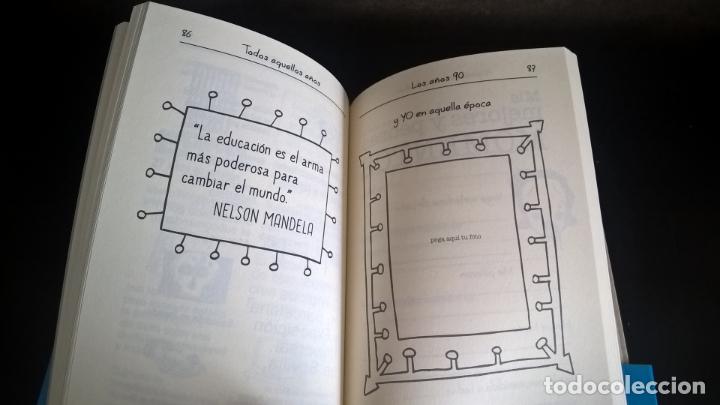 86
Todos aquellos años
"La educación es el arma
más poderosa para
cambiar el mundo."
NELSON MANDELA
Los años 90
87
y YO en aquella época
pega aquí tu foto
todocoleccion.net